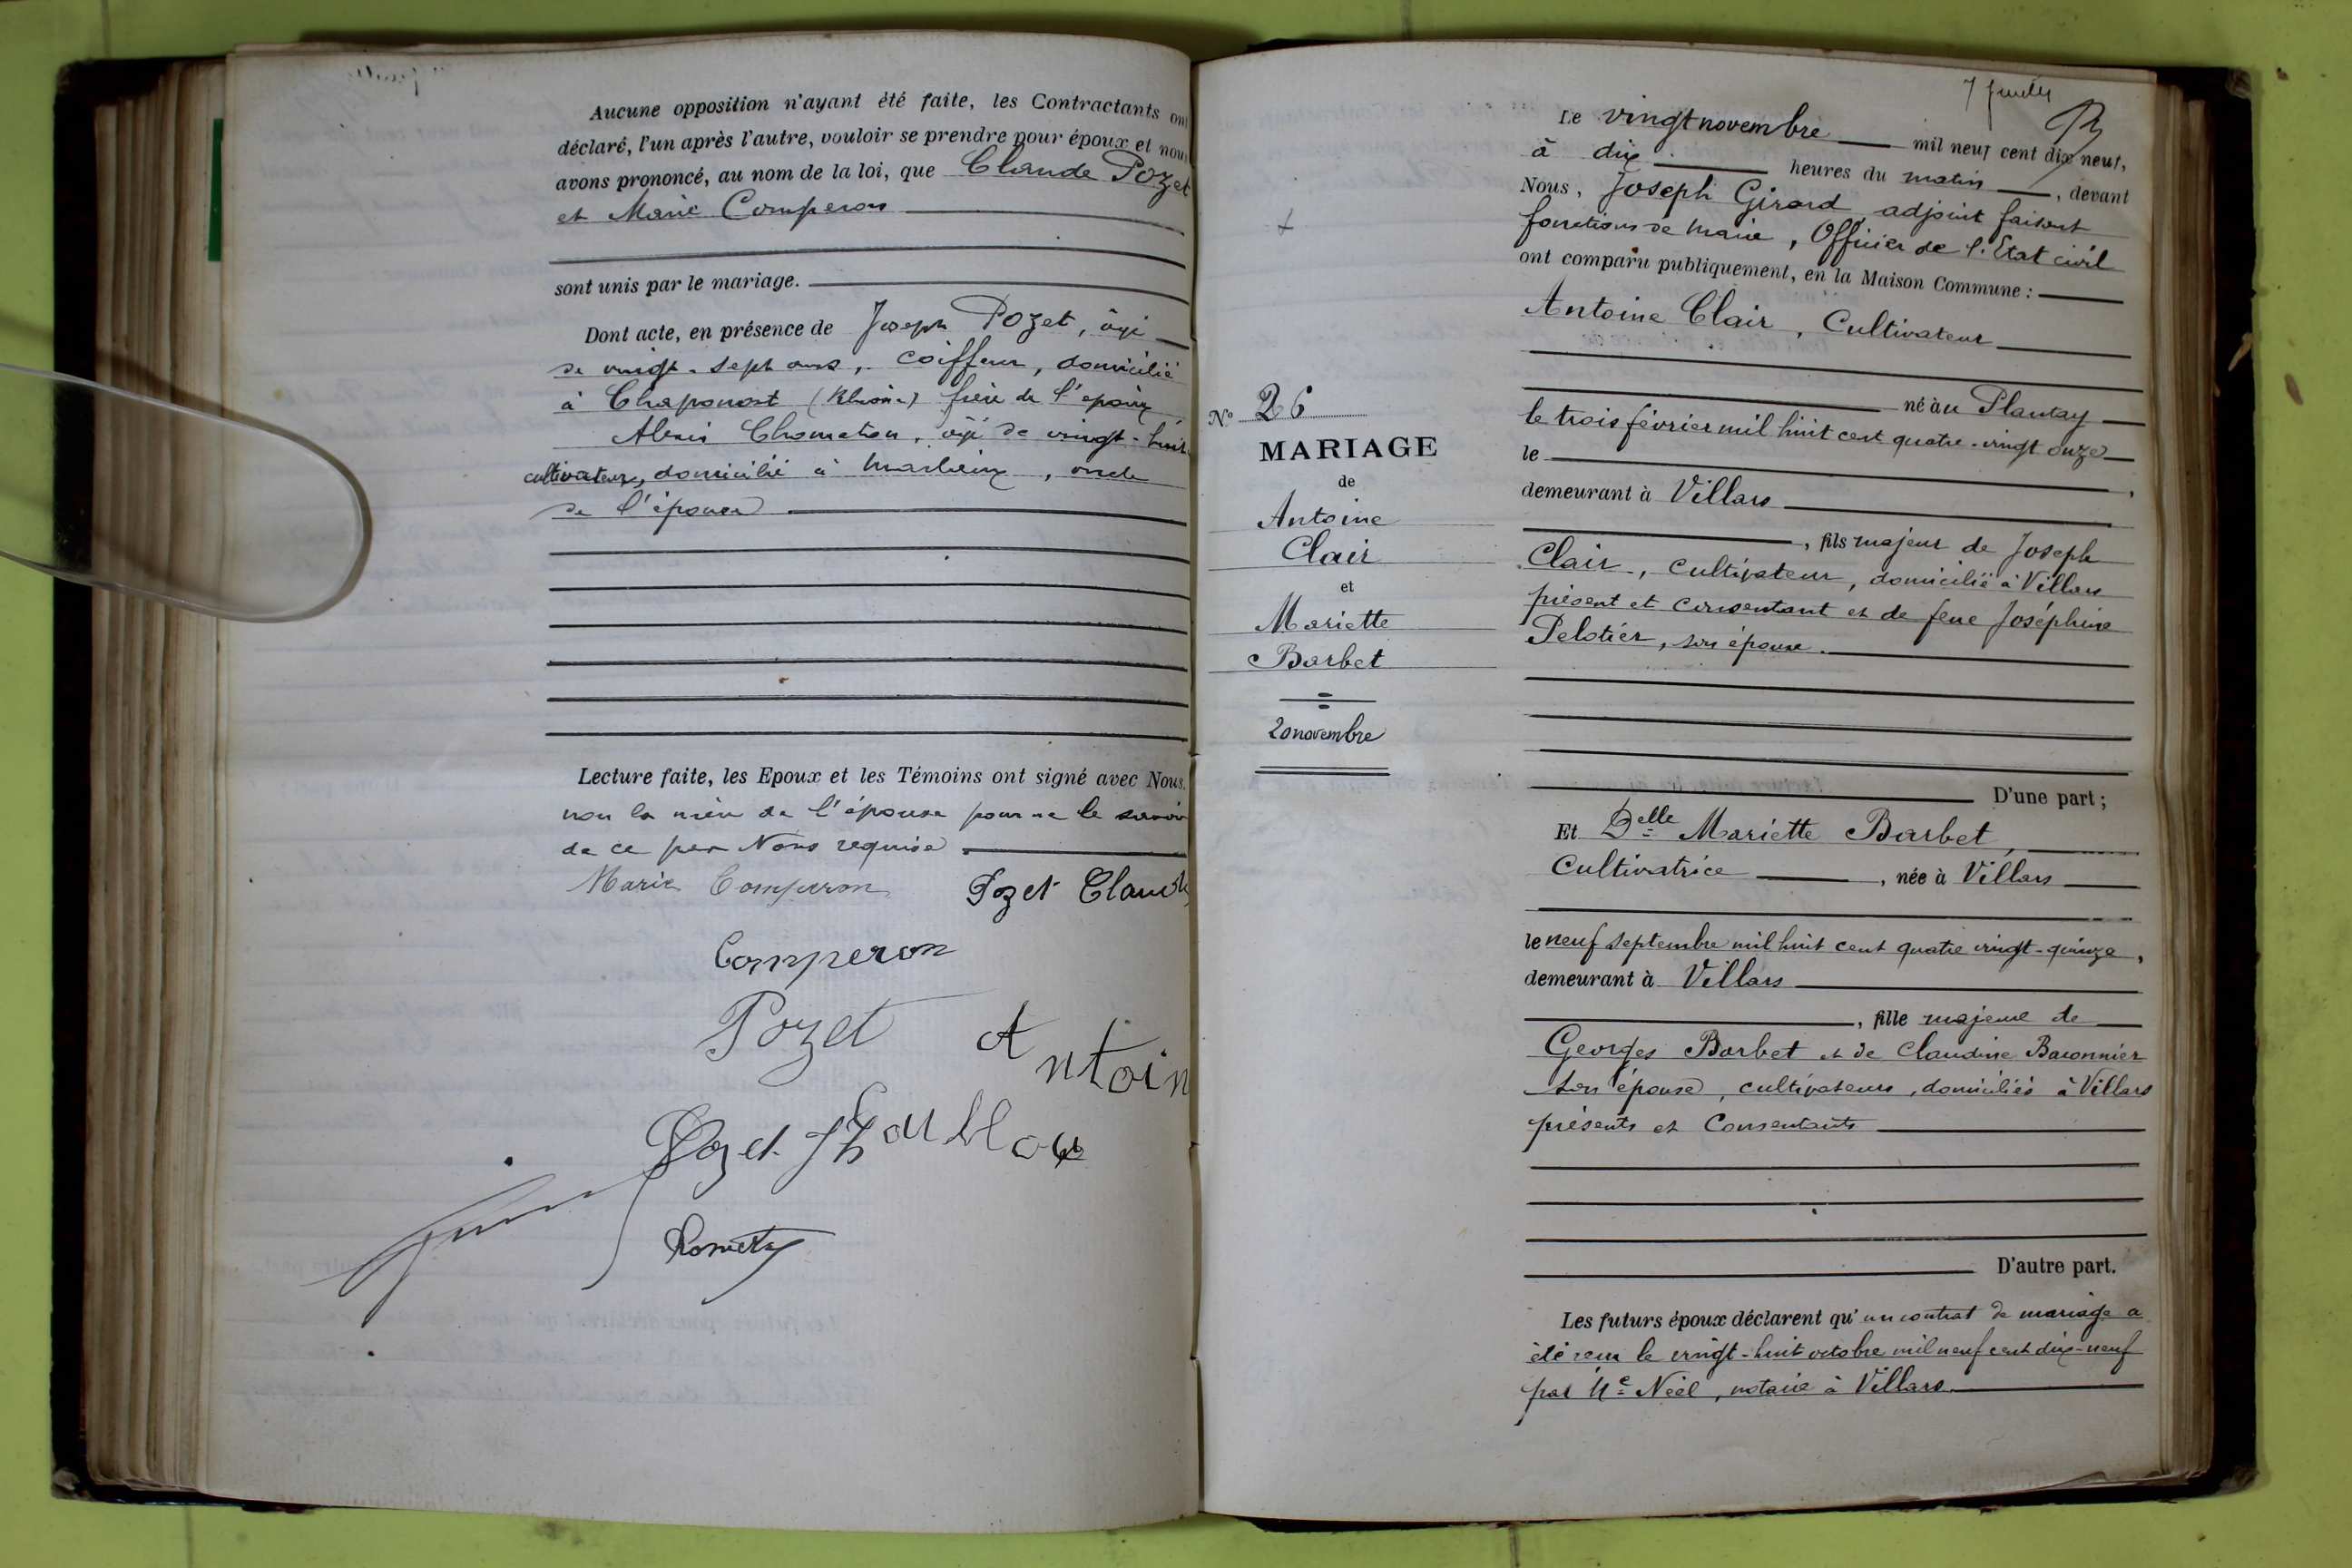 Aucune opposition n'ayant été faite, les Contractants ont
déclaré, l'un après l'autre, vouloir se prendre pour époux et nous
avons prononcé, au nom de la loi, que Claude Pozet
et Marie Comperon
sont unis par le mariage.
Dont acte, en présence de Joseph Pozet, âgé
de vingt-sept ans, coiffeur, domicilié
à Chaponost (Rhône) frère de l'époux
Alexis Chometon, âgé de vingt-huit
cultivateur, domicilié à Marlieux, oncle
de l'épouse
Lecture faite, les Epoux et les Témoins ont signé avec Nous.
non la mère de l'épouse pour ne le savoir
de ce par Nous requise.
Marie Comperon Pozet Claude
Comperon
Pozet Antoin
Pozet
N° 26
MARIAGE
de
Antoine
Clair
et
Mariette
Barbet
20 novembre
Le vingt novembre mil neuf cent dix neuf,
à dix heures du matin, devant
Nous, Joseph Girard adjoint faisant
fonctions de maire, Officier de l'Etat civil
ont comparu publiquement, en la Maison Commune :
Antoine Clair, Cultivateur
né àu Plantay
le trois février mil huit cent quatre-vingt onze
le
demeurant à Villars
, fils majeur de Joseph
Clair, Cultivateur, domicilié à Villars
présent et consentant et de feue Joséphine
Pelotier, son épouse.
D'une part ;
Et Delle Mariette Barbet,
Cultivatrice, née à Villars
le neuf septembre mil huit cent quatre vingt-quinze,
demeurant à Villars
, fille majeure de
Georges Barbet et de Claudine Baconnier
son épouse, cultivateurs, domiciliés à Villars
présents et Consentants
D'autre part.
Les futurs époux déclarent qu'un contrat de mariage a
été reçu le vingt-huit octobre mil neuf cent dix-neuf
par Me Néel, notaire à Villars.